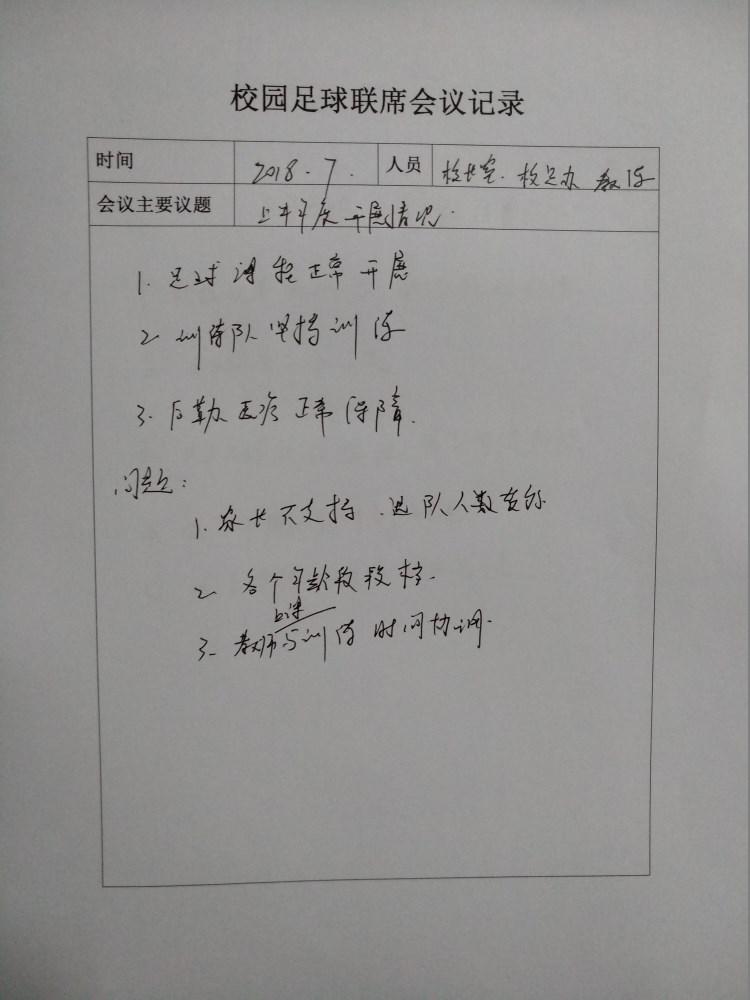 校园足球联席会议记录
时间 2018.7. 人员 校长室. 校足办 教练
会议主要议题 上半年度开展情况.
1. 足球课程正常开展
2 训练队坚持训练
3. 后勤医疗正常保障.
问题:
1. 家长不支持.进队人数
2 各个年龄段
上课
3- 教师与训练时间协调.